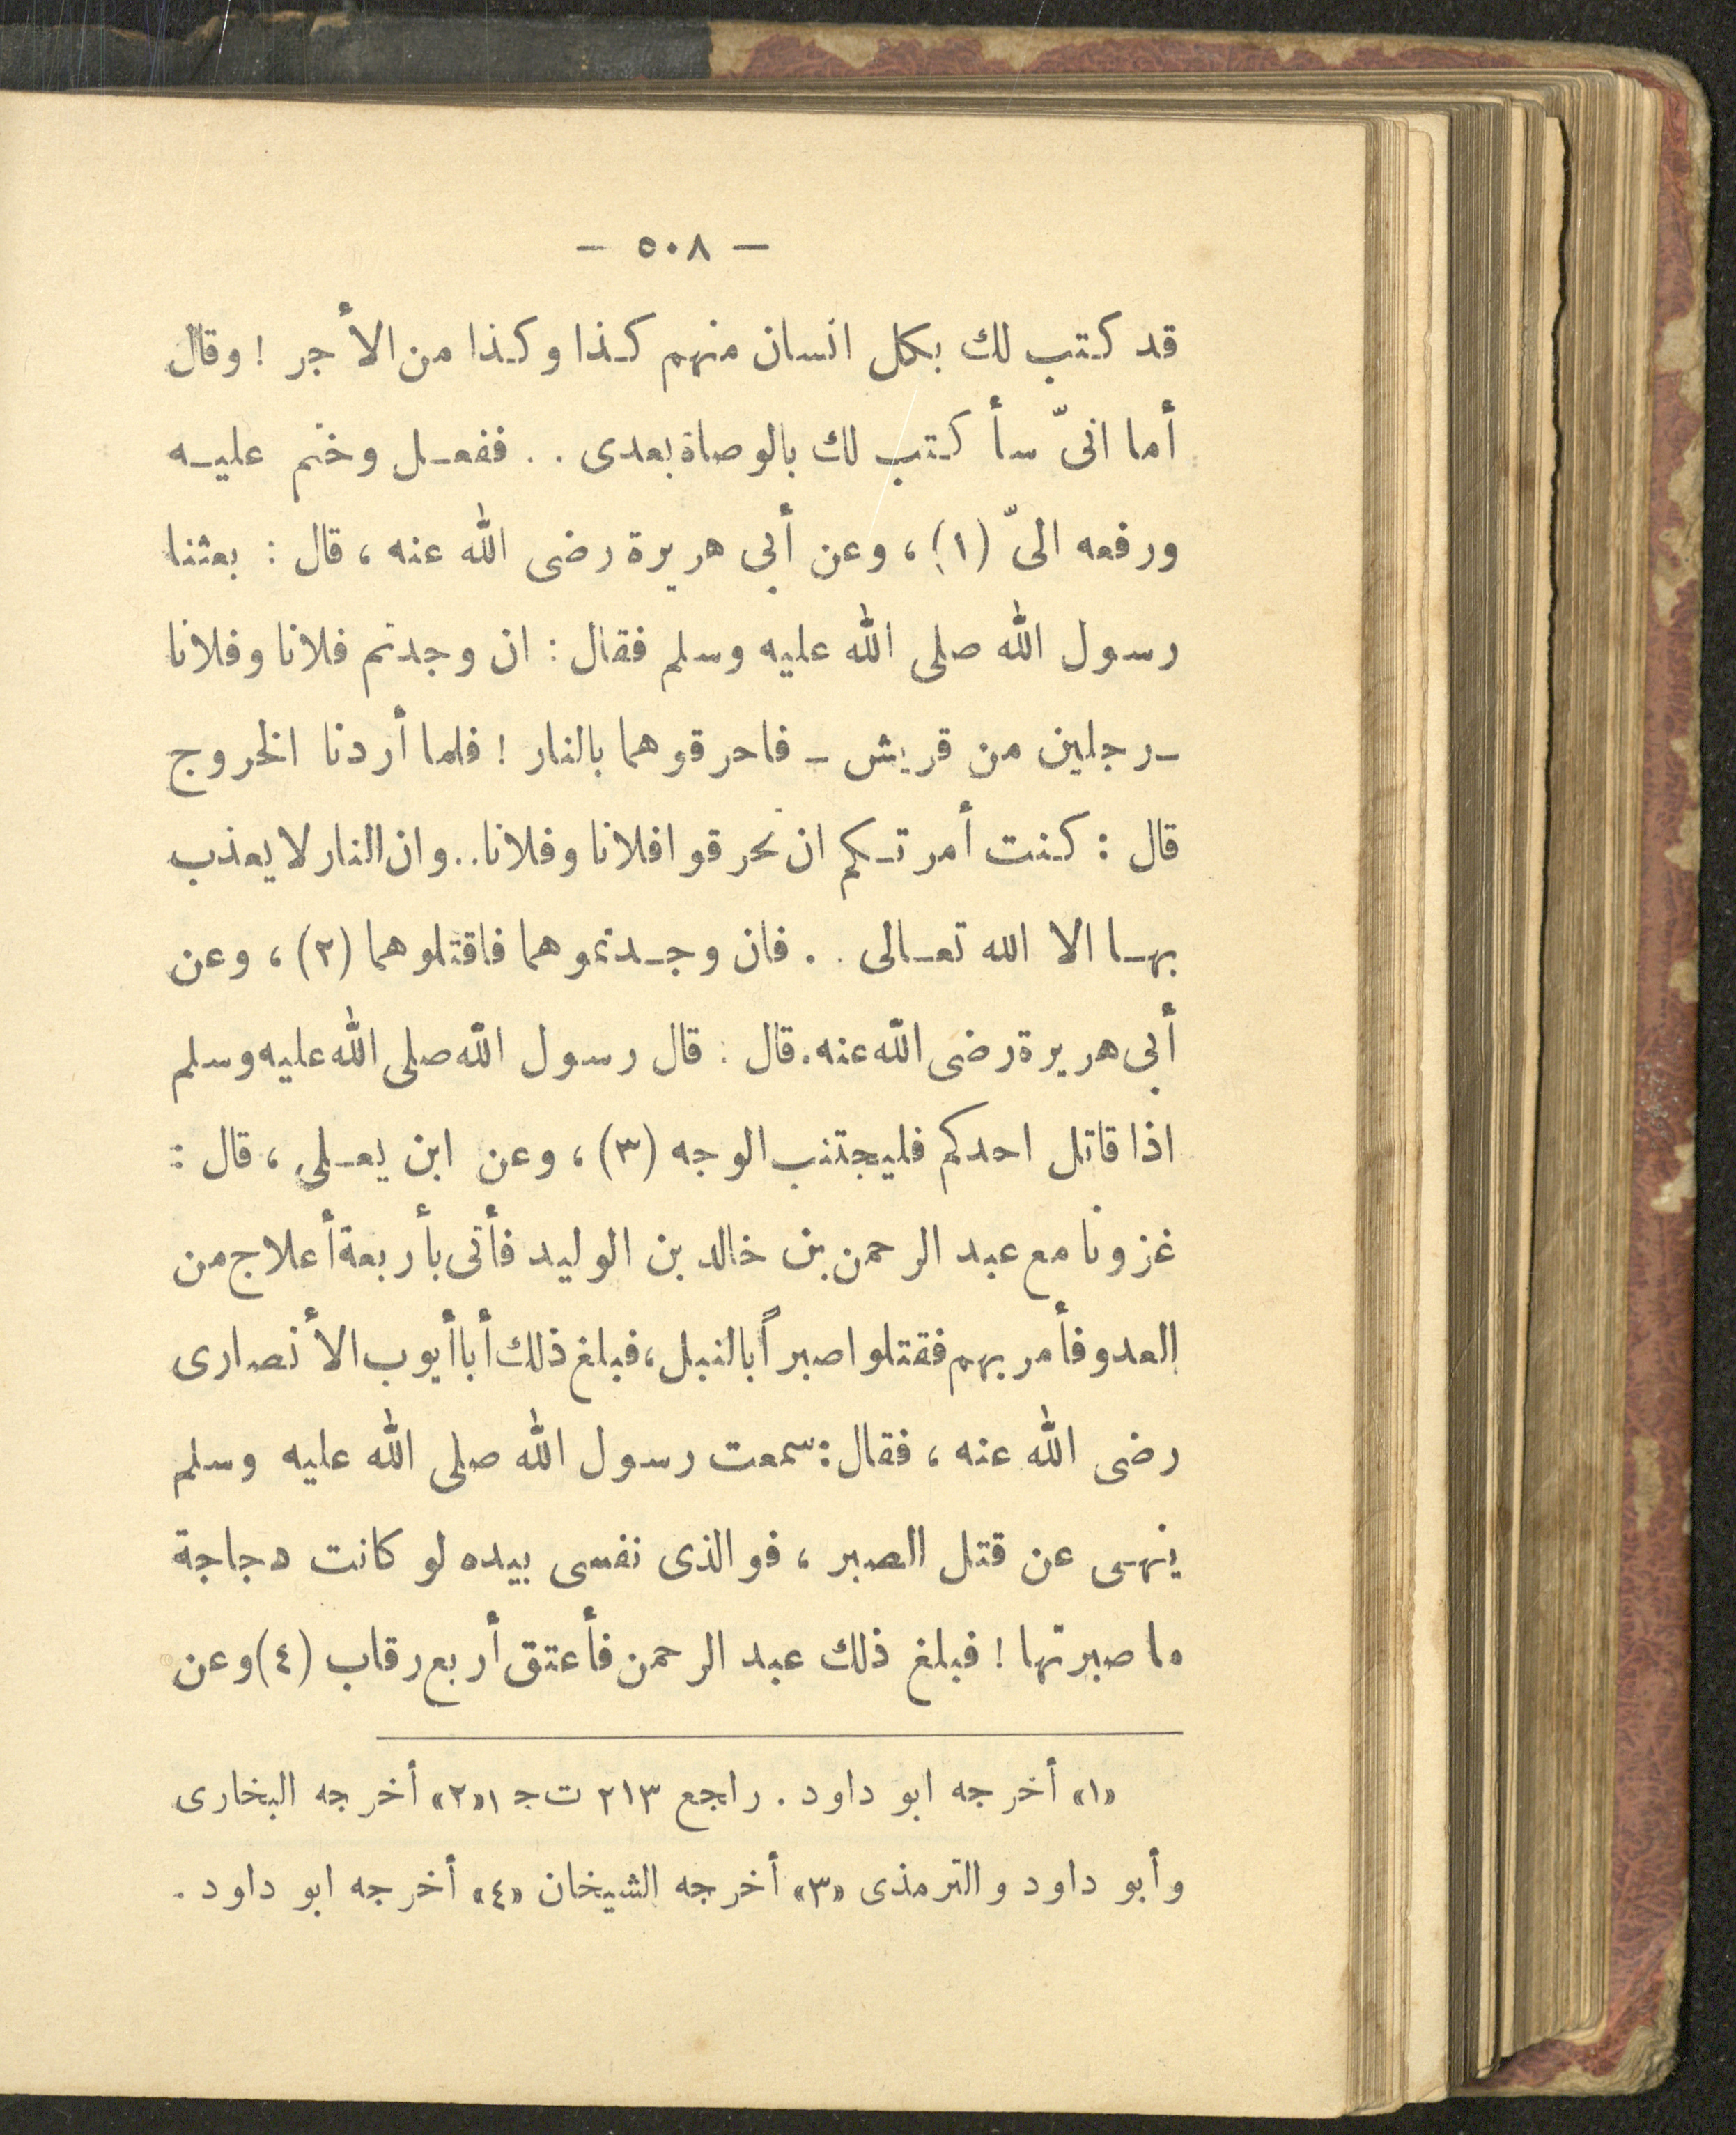 — ٥٠٨ —
قد كتب لك بكل انسان منهم كذا وكذا من الأجر ! وقال
أما انىّ سأكتب لك بالوصاة بعدى . . ففعـل وختم عليـه
ورفعه الىّ (١) ، وعن أبى هريرة رضى الله عنه ، قال : بعثنا
رسول الله صلى الله عليه وسلم فقال : ان وجدتم فلانا وفلانا
ـ رجلين من قريش ـ فاحرقوهما بالنار ! فلما أردنا الخروج
قال : كنت أمرتكم ان تحرقوا فلانا وفلانا . . وان النار لا يعذب
بهـا الا الله تعـالى . . فان وجـدتموهما فاقتلوهما (٢) ، وعن
أبى هريرة رضى الله عنه . قال : قال رسول الله صلى الله عليه وسلم
اذا قاتل احدكم فليجتنب الوجه (٣) ، وعن ابن يعـلى ، قال :
غزونا مع عبد الرحمن بن خالد بن الوليد فأتى بأربعة أعلاج من
العدو فأمر بهم فقتلوا صبراً بالنبل ، فبلغ ذلك أبا أيوب الأنصارى
رضى الله عنه ، فقال : سمعت رسول الله صلى الله عليه وسلم
ينهـى عن قتل الصبر ، فو الذى نفسى بيده لو كانت دجاجة
ما صبرتها ! فبلغ ذلك عبد الرحمن فأعتق أربع رقاب (٤) وعن
«١» أخرجه ابو داود . راجع ٢١٣ ت جـ ١ «٢» أخرجه البخارى
وأبو داود والترمذى «٣» أخرجه الشيخان «٤» أخرجه ابو داود .